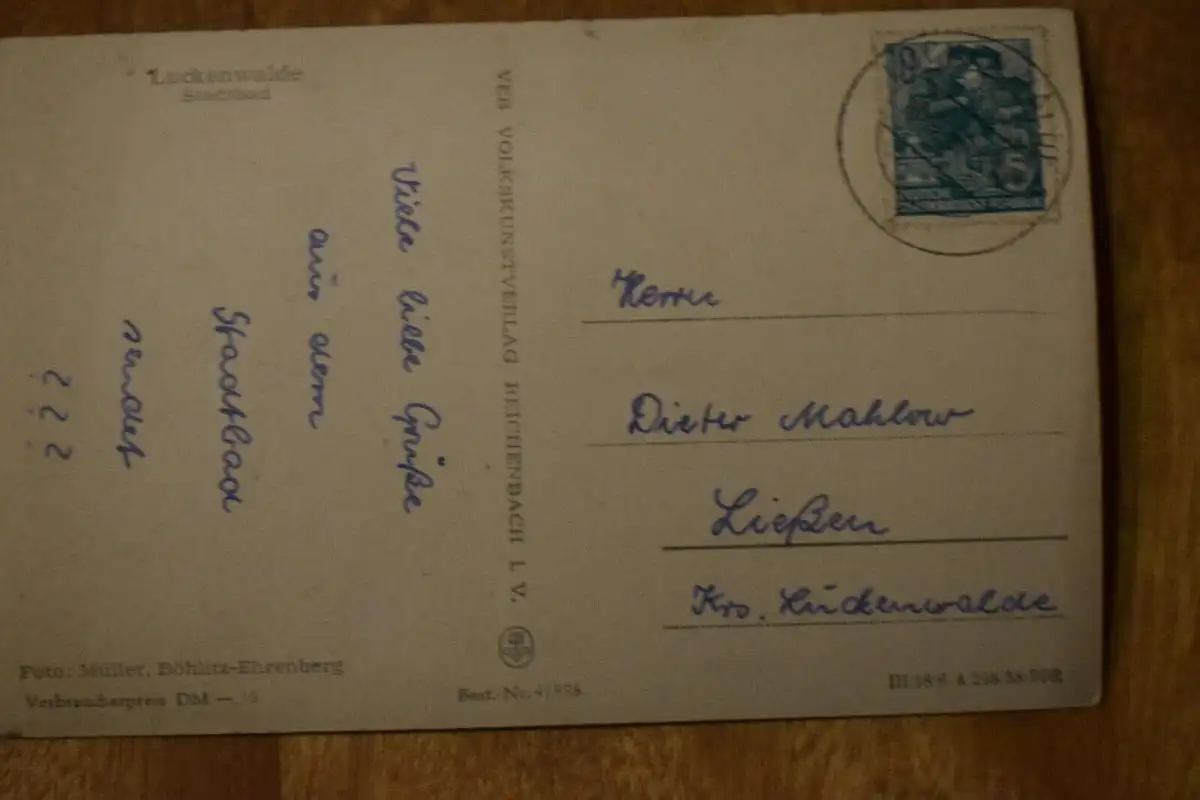 Luckenwalde
Stadtbad
Viele liebe Grüße
aus dem
Stadtbad
sendet
? ? ?
VEB VOLKSKUNSTVERLAG REICHENBACH I. V.
5
Herrn
Dieter Mahlow
Ließen
Krs. Luckenwalde
Foto: Müller, Böhlitz-Ehrenberg
Verbraucherpreis DM
Best. Nr.
III/18/6 A